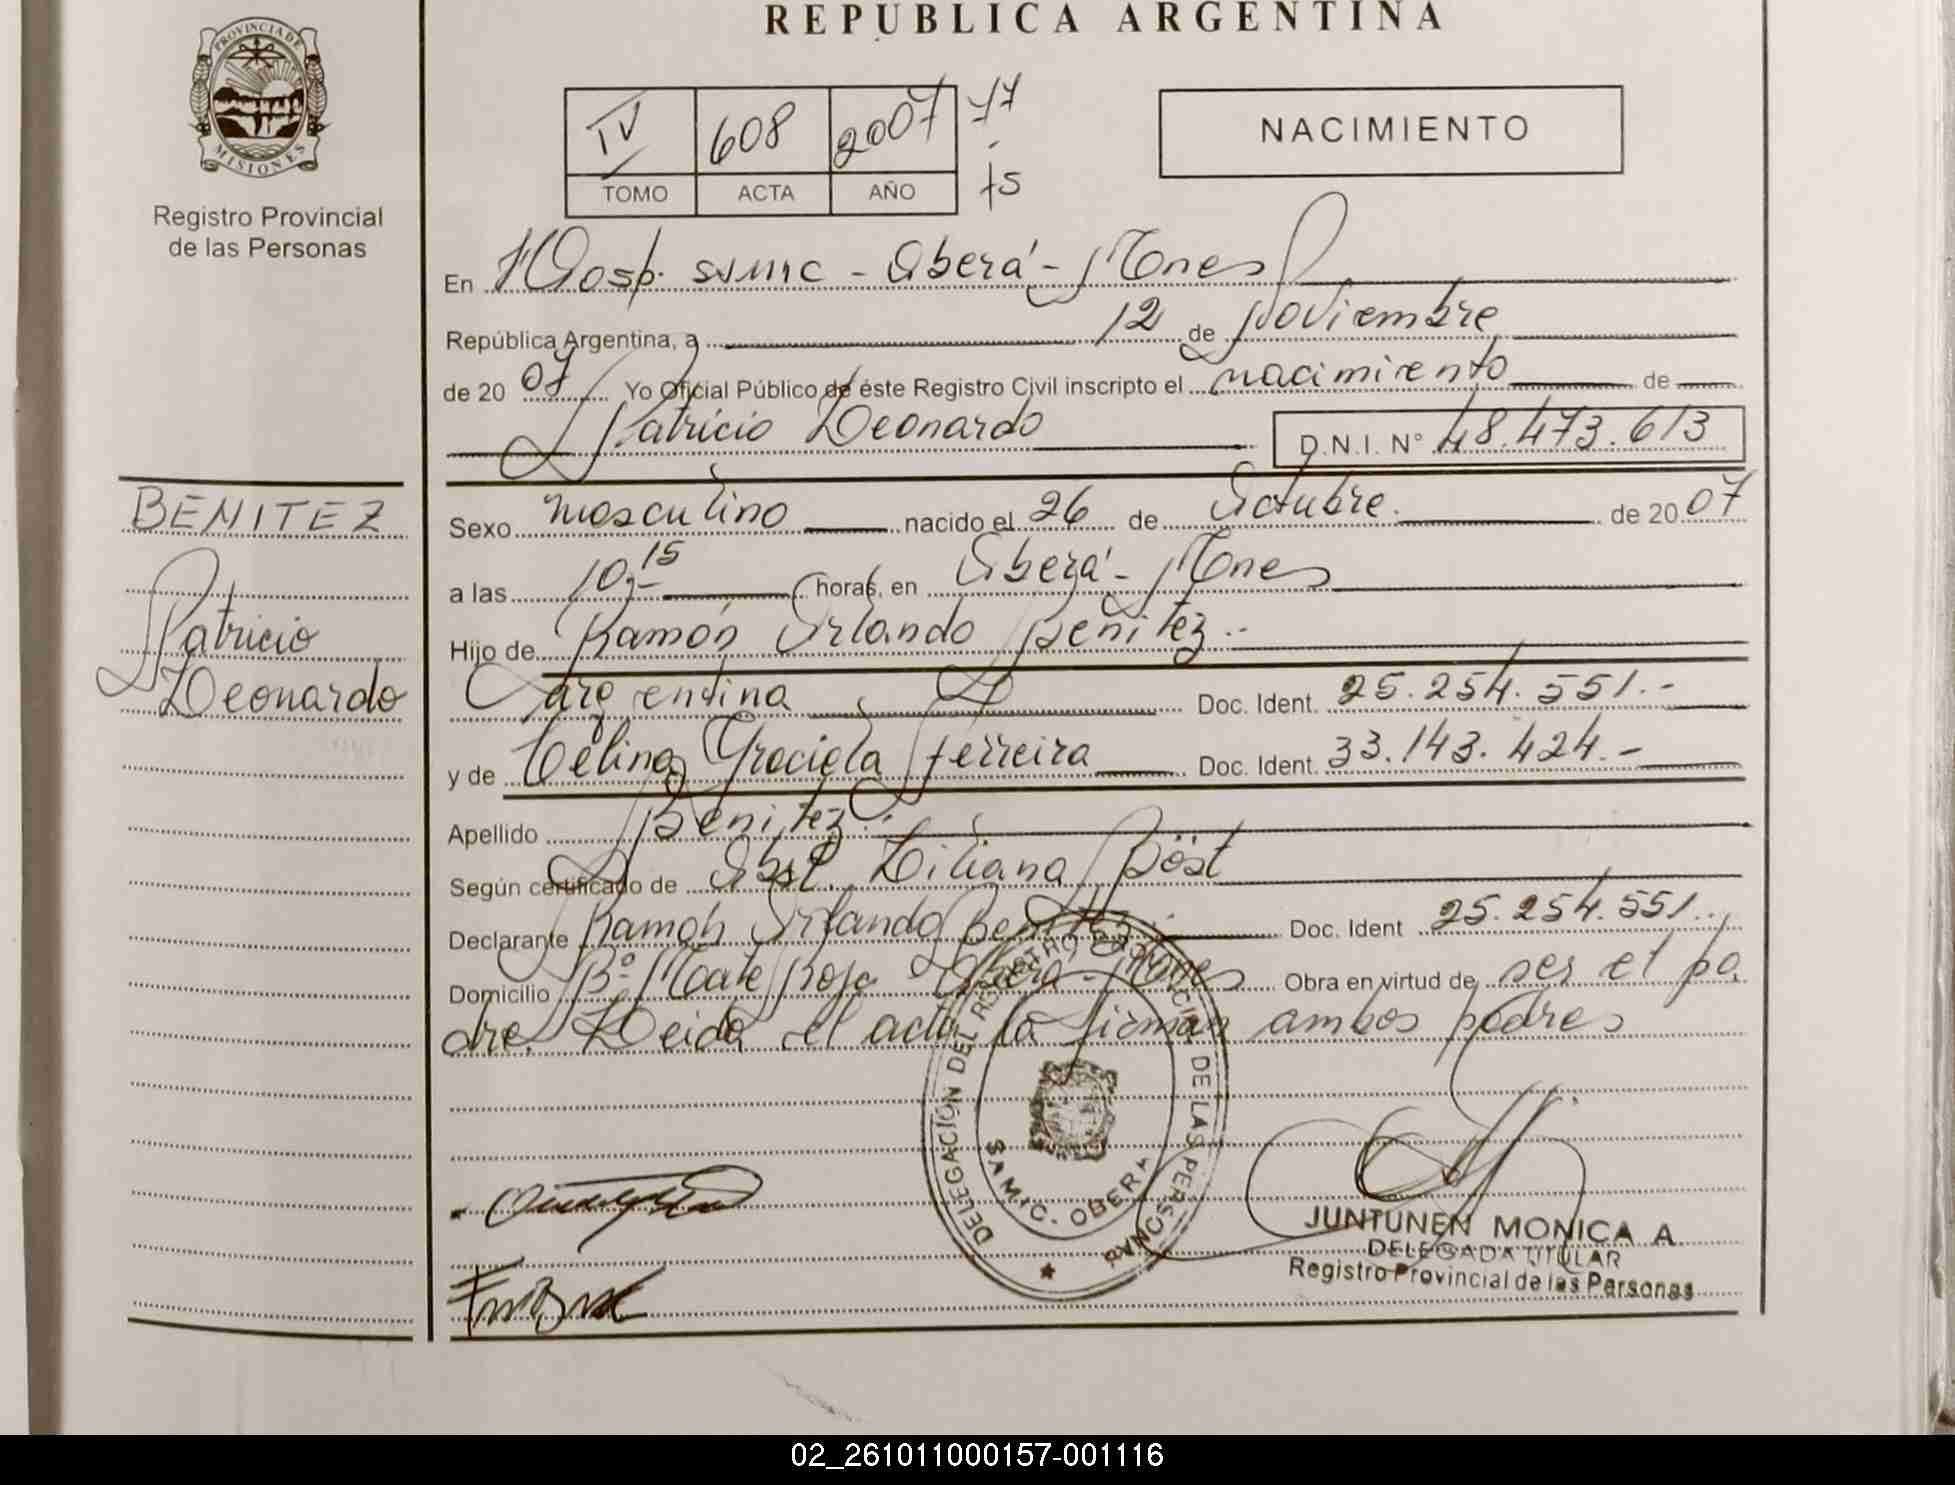 REPUBLICA ARGENTINA
PROVINCIA DE
MISIONES
Registro Provincial
de las Personas
IV 608 2007 77
TOMO ACTA AÑO 75
NACIMIENTO
En Hosp. SAMIC - Oberá - Mnes
República Argentina, a 12 de Noviembre
de 20 07 Yo Oficial Público de éste Registro Civil inscripto el nacimiento de
Patricio Leonardo D.N.I. N° 48.473.613
BENITEZ
Patricio
Leonardo
Sexo masculino nacido el 26 de Octubre. de 20 07
a las 10,15 horas, en Oberá - Mnes
Hijo de Ramón Orlando Benitez.-
argentina Doc. Ident. 25.254.551.-
y de Celina Graciela Ferreira Doc. Ident. 33.143.424.-
Apellido Benitez.-
Según certificado de Obst. Liliana Böst
Declarante Ramón Orlando Benitez.- Doc. Ident 25.254.551.-
Domicilio B° Mate Rojo Oberá - Mnes Obra en virtud de ser el pa
dre. Leida el acta la firman ambos padres
DELEGACIÓN DEL REGISTRO PROVINCIAL DE LAS PERSONAS
SAMIC. OBERA
JUNTUNEN MONICA A.
DELEGADA TITULAR
Registro Provincial de las Personas
02_261011000157-001116